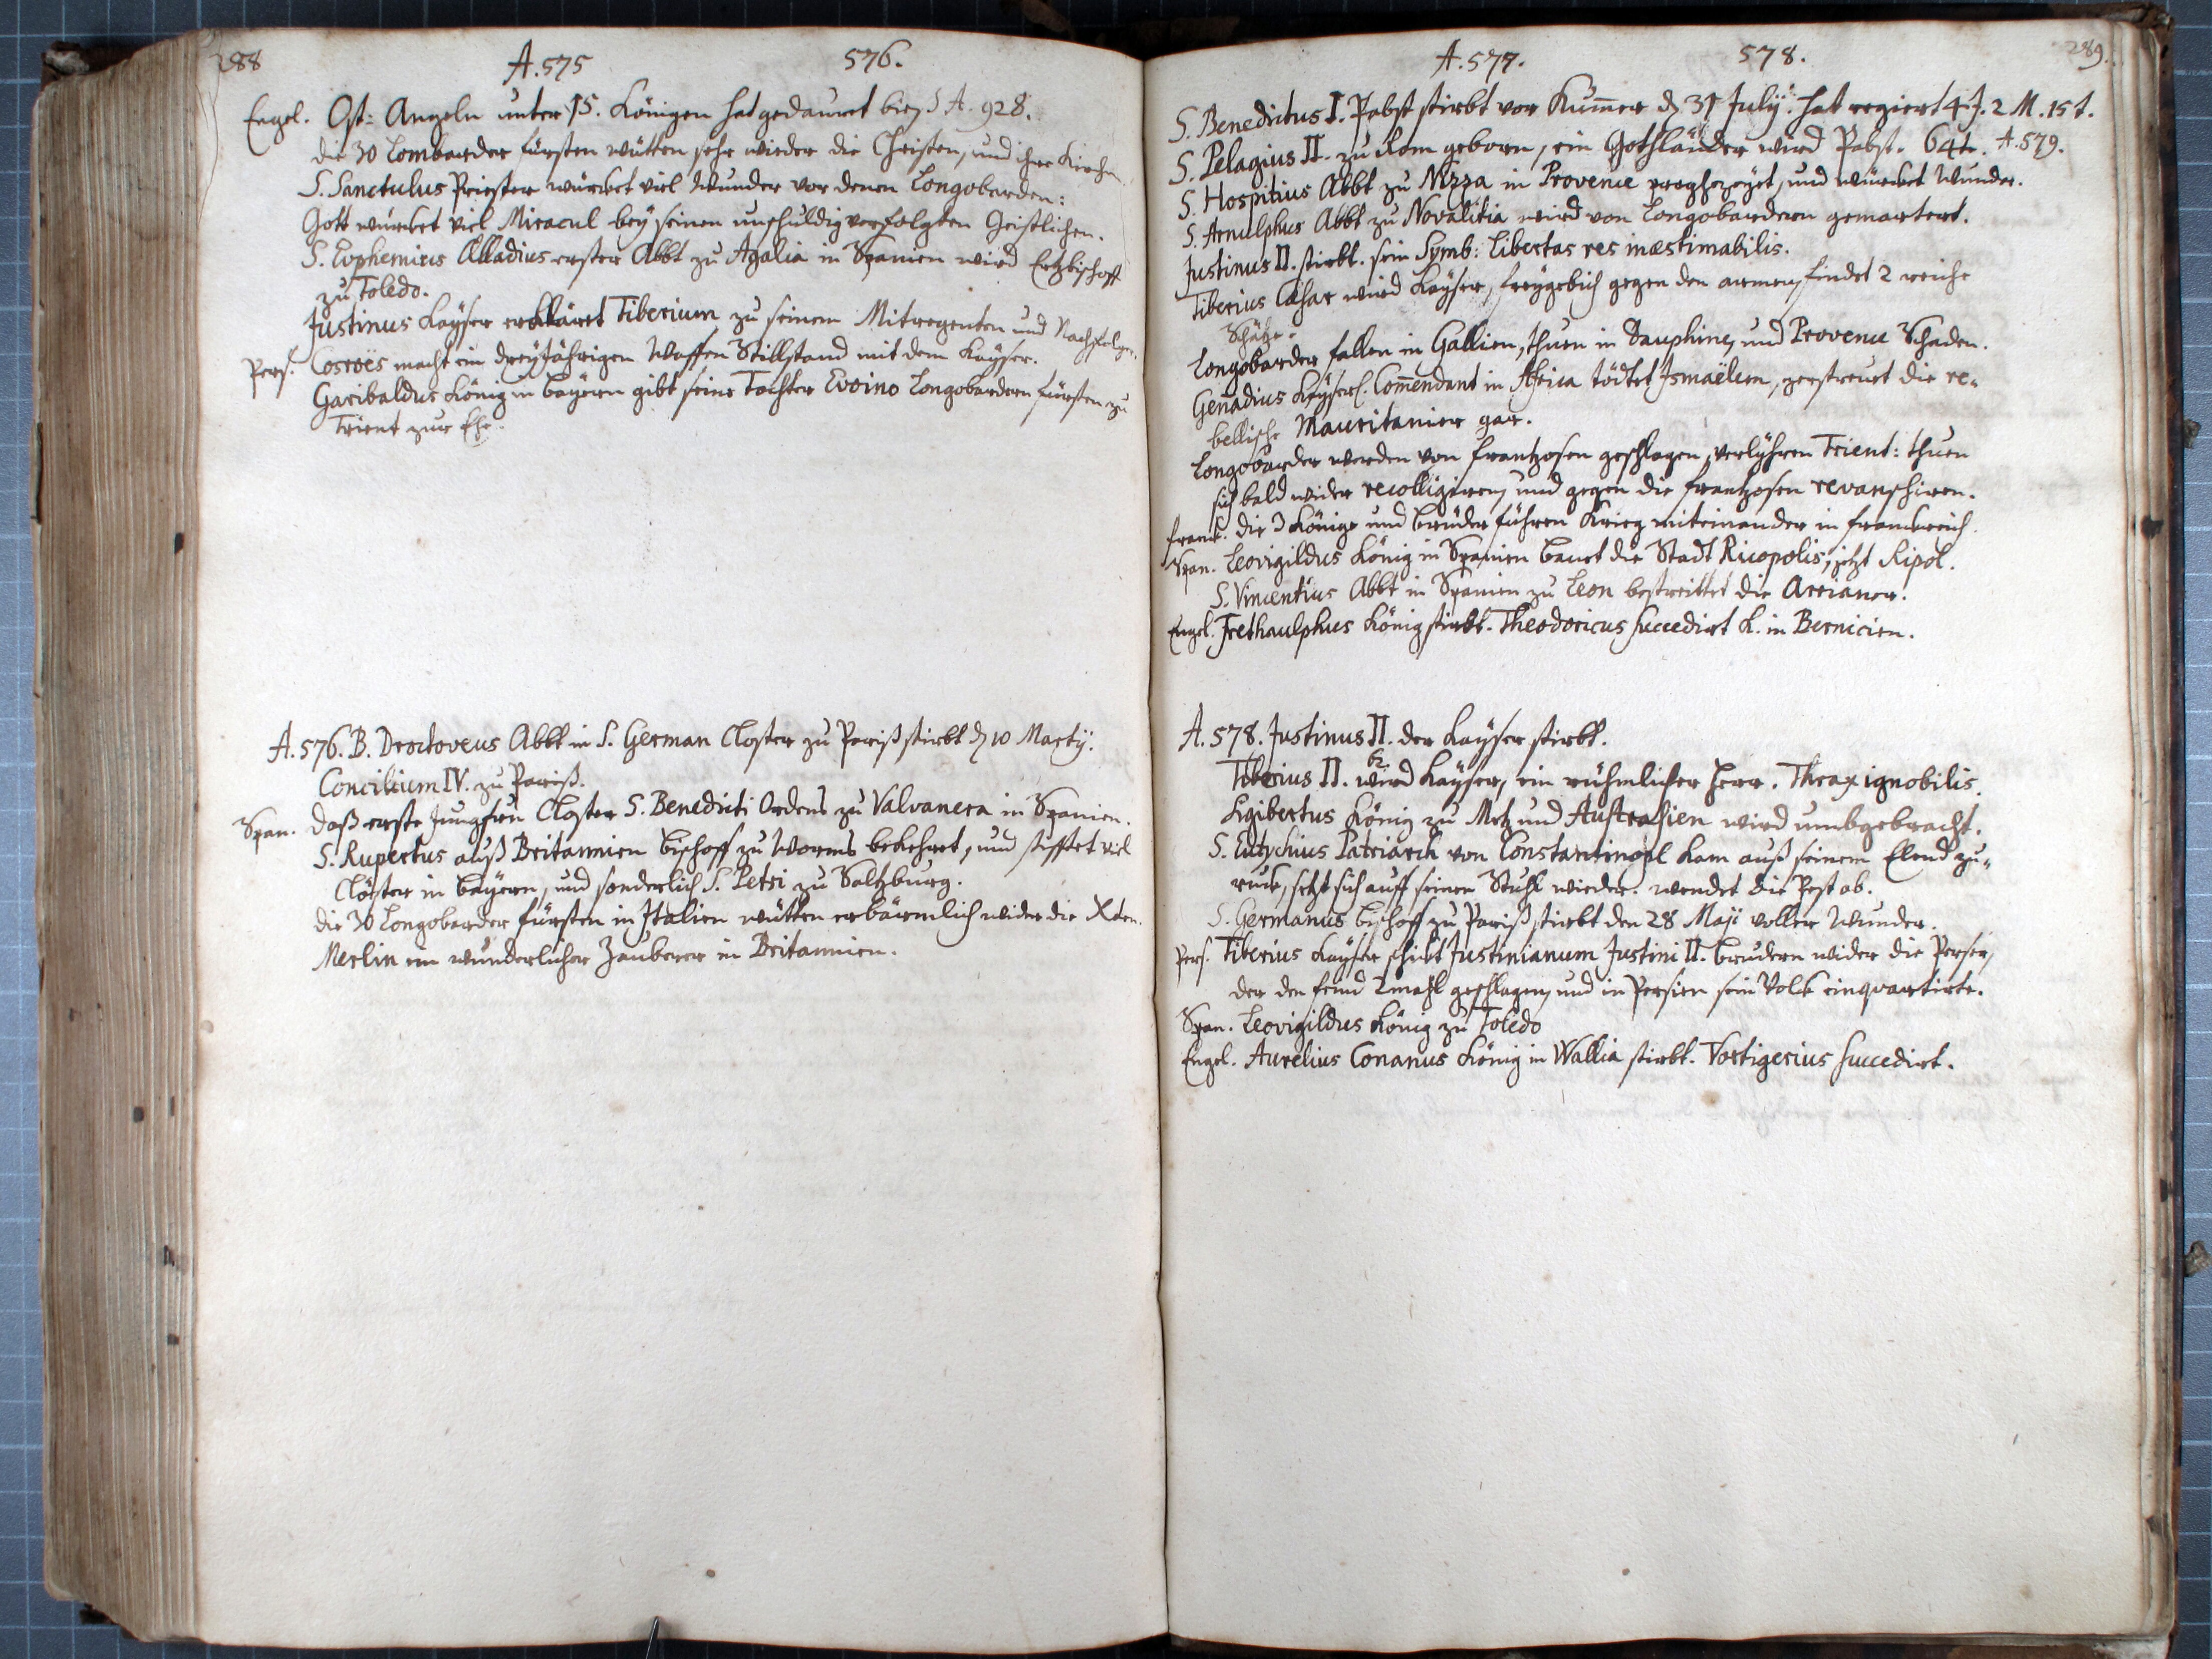 288
A. 575
576.
Engel. Ost: Angeln unter 15. Königen hat gedauret bieß A. 928.
die 30 Lombarder fürsten wütten sehr wieder die Christen, und ihre Kirchen
S. Sanctulus Priester würcket viel Wunder vor denen Longobarden:
Gott würcket viel Miracul bey seinen unschuldig verfolgten Geistlichen.
S. Euphemius Alladius erster Abbt zu Agalia in Spanien wird Ertzbischoff
zu Toledo.
Justinus Kayser erkläret Tiberium zu seinem Mitregenten und Nachfolger.
Pers. Cosroës macht ein dreyJährigen Waffen Stillstand mit dem Kayser.
Garibaldus König in Bayern gibt seine Tochter Evoino Longobardern fürsten zu
Trient zur Ehe.
A. 576. B. Droctoveus Abbt in S. German Closter zu Pariß stirbt d. 10 Martÿ.
Concilium IV. zu Pariß.
Span. Daß erste Jungfrau Closter S. Benedicti Ordens zu Valvanera in Spanien.
S. Rupertus auß Britannien Bischoff zu Worms bekehret, und stifftet viel
Clöster in Bayern, und sonderlich S. Petri zu Saltzburg.
die 30 Longobarder fürsten in Italien wütten erbärmlich wider die Xsten.
Merlin ein wunderlicher Zauberer in Britannien.
A. 577.
578.
289.
S. Benedictus I. Pabst stirbt vor Kum̄er d. 31 Julÿ. hat regiert 4 J. 2 M. 15 t.
S. Pelagius II. zu Rom geboren, ein Gothländer wird Pabst. 64t. A. 579.
S. Hospitius Abbt zu Nizza in Provence prophezeyet, und würcket Wunder.
S. Arnulphus Abbt zu Novalitia wird von Longobardern gemartert.
Justinus II. stirbt. sein Symb: Libertas res inæstimabilis.
Tiberius Cæsar wird Kayser, freygebich gegen den armen, findet 2 reiche
Schätze.
Longobarder fallen in Gallien, thuen in Dauphine, und Provence Schaden.
Genadius Kayserl. Com̄endant in Africa tödtet Ismaëlem, zerstreuet die re-
bellische Mauritanier gar.
Longobarder werden von Frantzosen geschlagen, verlyhren Trient: thuen
sich bald wider recolligiren, und gegen die Frantzosen revanschiren.
Franck. die 3 Könige und Brüder führen Krieg miteinander in Franckreich.
Span. Leovigildus König in Spanien bauet die Stadt Ricopolis, jetzt Ripol.
S. Vincentius Abbt in Spanien zu Leon bestreittet die Arrianer.
Engel. Frethaulphus König stirbt. Theodoricus succedirt K. in Bernicien.
A. 578. Justinus II. der Kayser stirbt.
Tiberius II. wird Kayser, ein rühmlicher Herr. Thrax ignobilis.
Sigibertus König zu Metz und Australien wird umbgebracht.
S. Eutychius Patriarch von Constantinopl kam auß seinem Elend zu-
ruck, setzt sich auff seinen Stuhl wieder. wendet die Pest ab.
S. Germanus Bischoff zu Pariß stirbt den 28 Maji voller Wunder.
Pers. Tiberius Kayser schickt Justinianum Justini II. Brudern wider die Perser,
der den feind 2mahl geschlagen, und in Persien sein Volck einquartirte.
Span. Leovigildus König zu Toledo
Engel. Aurelius Conanus König in Wallia stirbt. Vortigerius succedirt.